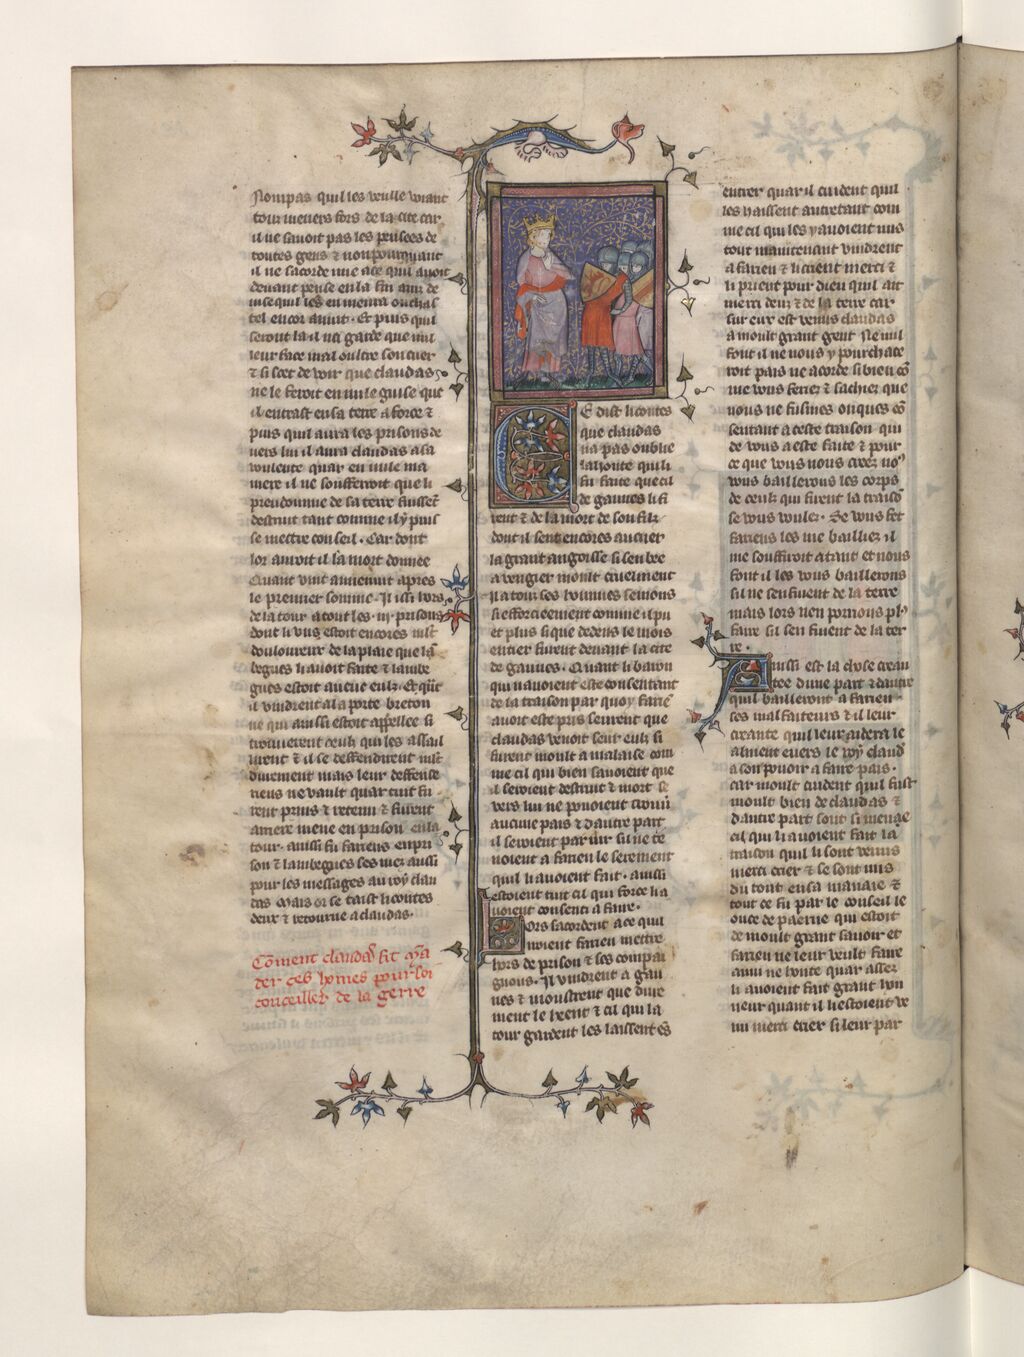 Non pas quil les veulle voiant
touz mener fors de la cite car
il ne savoit pas les pensees de
toutes gens & non pourquant
il ne sacorde mie a ce quil avoit
devant pense en la fin ainz de
vise quil les en menra ou chas
tel encor anuit. Et puis quil
seront la il na garde que nul
leur face mal oultre son cuer
& si scet de voir que claudas
ne le feroit en nule guise que
il entrast en sa terre a force &
puis quil aura les prisons de
vers lui il aura claudas a sa
voulente quar en nule ma
niere il ne soufferroit que li
preudomme de sa terre fussēt
destruit tant comme il y puis
se mettre conseil. Car dont
lor auroit il la mort donnee
Quant vint anienuit apres
le premier somme. Il issi hors
de la tour a tout les .iij. prisons
dont li uns estoit encores mlt
douloureux de la plaie que lā
begues li avoit faite & lambe
gues estoit avecue eulz. Et qn̄t
il vindrent a la porte breton
ne qui aussi estoit appellee si
trouverent ceulz qui les assail
lirent & il se deffendirent mlt
durement mais leur deffence
riens ne vault quar tuit fu
rent prins & retenu & furent
arriere mene en prison en la
tour. aussi fu fariens en pri
son & lambegues ses niez aussi
pour les messages au roy clau
das Mais or se taist li contes
deux & retourne a claudas.
Cōment claudaˢ fit mā
der ces hōmes pour soi
conceiller de la gerre
CE dist li contes
que claudas
na pas oublie
la honte qui li
fu faite que cil
de gaunes li fi
rent & de la mort de son filz
dont il sent encores au cuer
la grant angoisse si seulve
a vengier moult cruelment
Il a touz ses hommes semons
si efforcieement comme il pu
et plus si que dedens le mois
entier furent devant la cite
de gaunes. Quant li baron
qui avoient este consentant
de la traison par quoy fariē
avoit este pris seurent que
claudas venoit seur eulz si
furent moult a malaise com
me cil qui bien savoient que
il seroient destruit & mort se
vers lui ne pouoient trouver
aucune pais & dautre part
il seroient pariur si ne te
noient a farien le serement
quil li avoient fait. aussi
estoient tuit cil qui force li a
voient consenti a faire.
Lors sacordent a ce quil
iroient farien mettre
hors de prison & ses compai
gnons. Il vindrent a gau
nes & moustrent que dure
ment le heent & cil qui la
tour gardent les laissent ēs
entrer quar il cuident quil
les haissent autretant com
me cil qui les y avoient mis
tout maintenant vindrent
a farien & li crient merci &
li prient pour dieu quil ait
merci deux & de la terre car
sur eux est venus claudas
a moult grant gent Ne nul
font il ne nous y pourchace
roit pais ne acorde si bien cō
me vous feriez & sachiez que
nous ne fusmes onques cō
sentant a ceste traison qui
de vous a este faite & pour
ce que vous nous creez noˀ
vous baillerons les corps
de ceulz qui firent la traisō
se vous voulez. Se vous fet
fariens les me bailliez il
me souffiroit a tant et nous
font il les vous baillerons
sil ne senfuient de la terre
mais lors nen porrions plˀ
faire sil sen fuient de la ter
re.
Aussi est la chose crean
tee dune part & dautre
quil bailleront a farien
ses malfaiteurs & il leur
creante quil leur aidera le
alment envers le roy claud̄
a son pouoir a faire pais.
car moult cuident quil fust
moult bien de claudas &
dautre part sont si menac
cil qui li avoient fait la
traison quil li sont venus
merci crier & se sont mis
du tout en sa manaie &
tout ce fu par le conseil le
once de paerne qui estoit
de moult grant savoir et
farien ne leur veult faire
anui ne honte quar assez
li avoient fait grant hon
neur quant il li estoient ve
nu merci crier si leur par